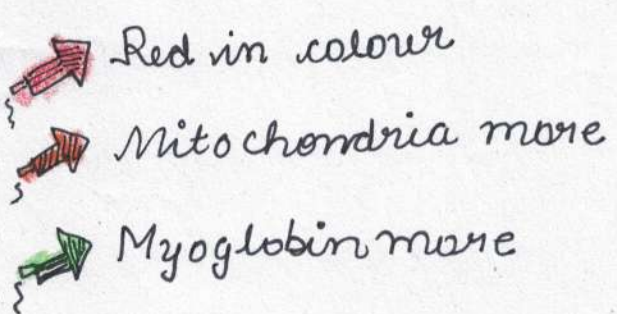 Red in colour
Mitochondria more
Myoglobin more